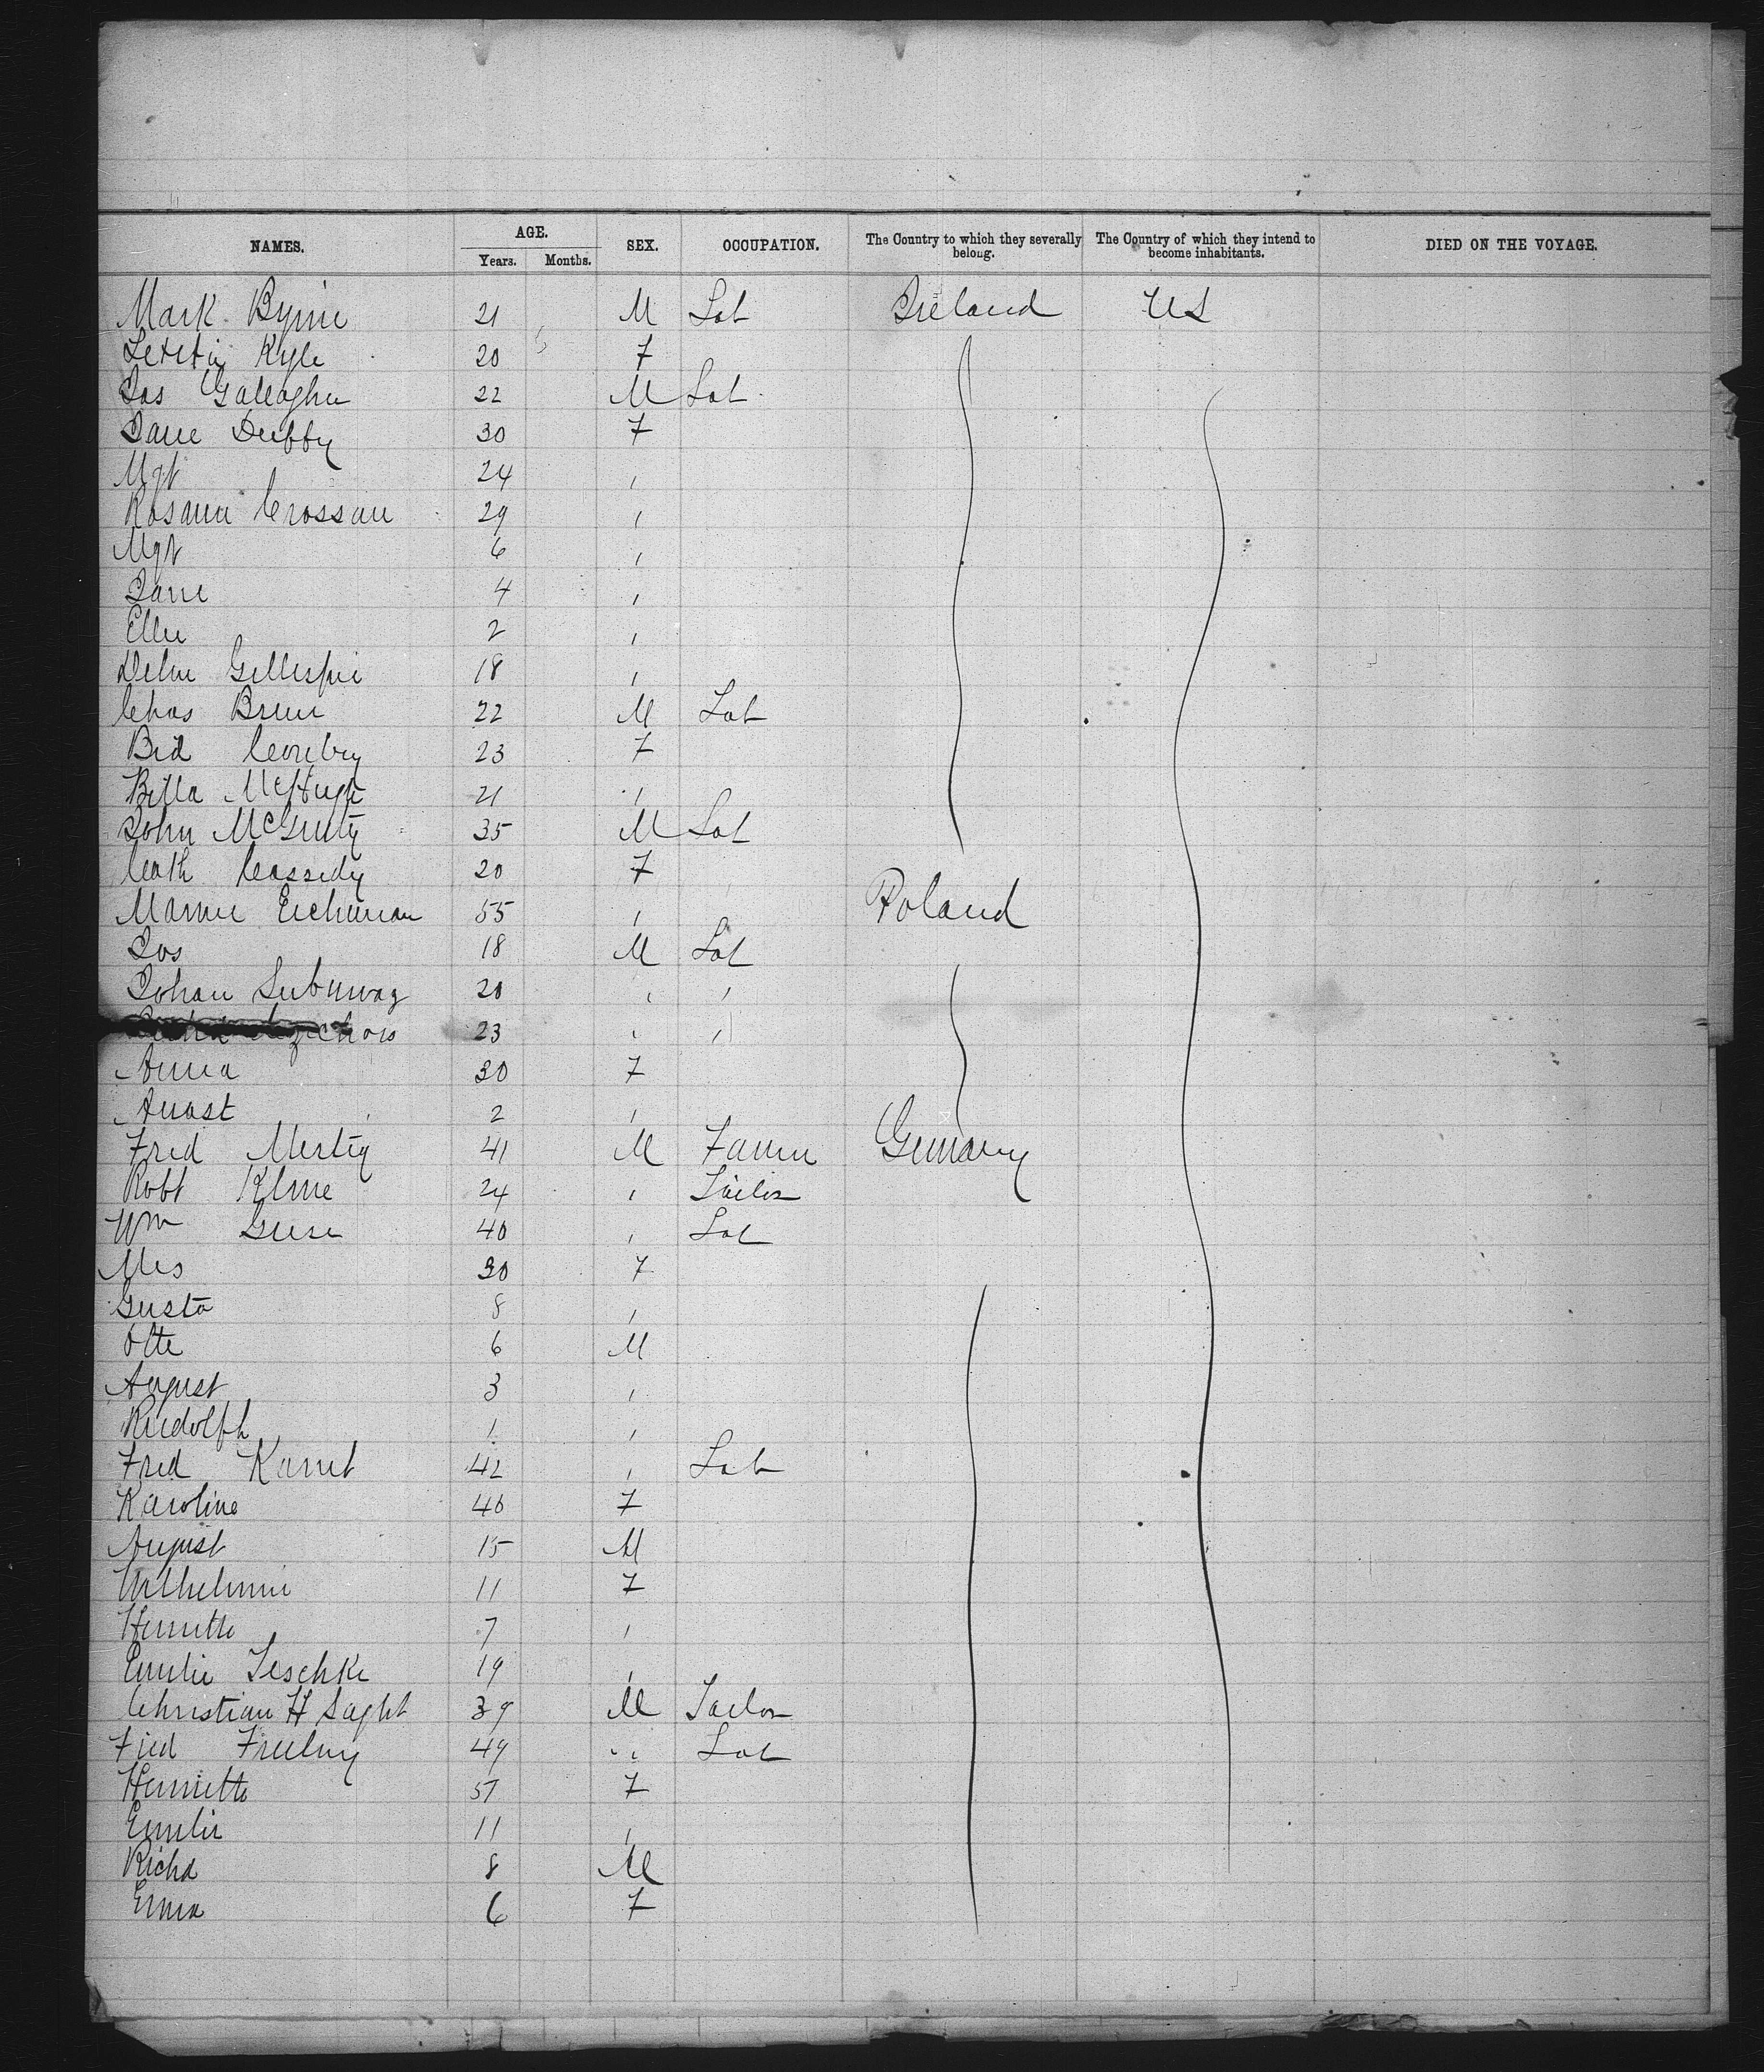 NAMES. AGE. SEX. OCCUPATION. The Country to which they severally belong. The Country of which they intend to become inhabitants. DIED ON THE VOYAGE.
Years. Months.
Mark Byrne 21 M Lab Ireland US
Letitia Kyle 20 F
Jas Gallagher 22 M Lab
Jane Duffy 30 F
Mgt 24 "
Rosanna Crossan 29 "
Mgt 6 "
Jane 4 "
Ellen 2 "
Delia Gillespie 18 "
Chas 22 M Lab
Bid 23 F
Bella McHugh 21 "
John McGinty 35 M Lab
Cath Cassidy 20 F
Eichman 55 " Poland
Jos 18 M Lab
Johan 20 " "
23 " "
Anna 30 F
Anast 2 "
Fred Mertig 41 M Farmer Germany
Robt Kline 24 " Tailor
Wm Guse 40 " Lab
Mrs 30 F
Gusta 8 "
Otte 6 M
August 3 "
Rudolph 1 "
Fred 42 " Lab
Karoline 40 F
August 15 M
Wilhelmine 11 F
Henrette 7 "
Emilie Teschke 19 "
Christian H 39 M Tailor
Fred 49 " Lab
Henrette 37 F
Emilie 11 "
Richd 8 M
Emma 6 F